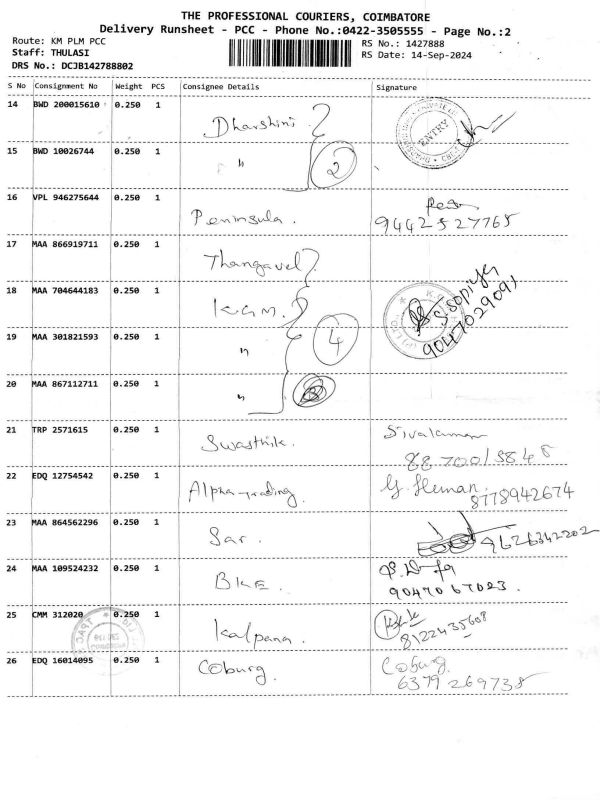 THE PROFESSIONAL COURIERS, COIMBATORE
Delivery Runsheet - PCC - Phone No.:0422-3505555 - Page No.:2
Route: KM PLM PCC
RS No.: 1427888
Staff: THULASI
RS Date: 14-Sep-2024
DRS No.: DCJB142788802
S No Consignment No Weight PCS Consignee Details Signature
14 BWD 200015610 0.250 1 Dharshini ENTRY
15 BWD 10026744 0.250 1 " 2
16 VPL 946275644 0.250 1 Peninsula. 9442527765
17 MAA 866919711 0.250 1 Thangavel
18 MAA 704644183 0.250 1 K.G.M.
19 MAA 301821593 0.250 1 " 4 9047029091
20 MAA 867112711 0.250 1 "
21 TRP 2571615 0.250 1 Swasthik. Sivakumar
22 EDQ 12754542 0.250 1 Alpha-trading. 8778942674
23 MAA 864562296 0.250 1 Sar. 9626342202
24 MAA 109524232 0.250 1 BKE. 9047067023.
25 CMM 312020 0.250 1 Kalpana. 8122435608
26 EDQ 16014095 0.250 1 Coburg. Coburg.
6379269738